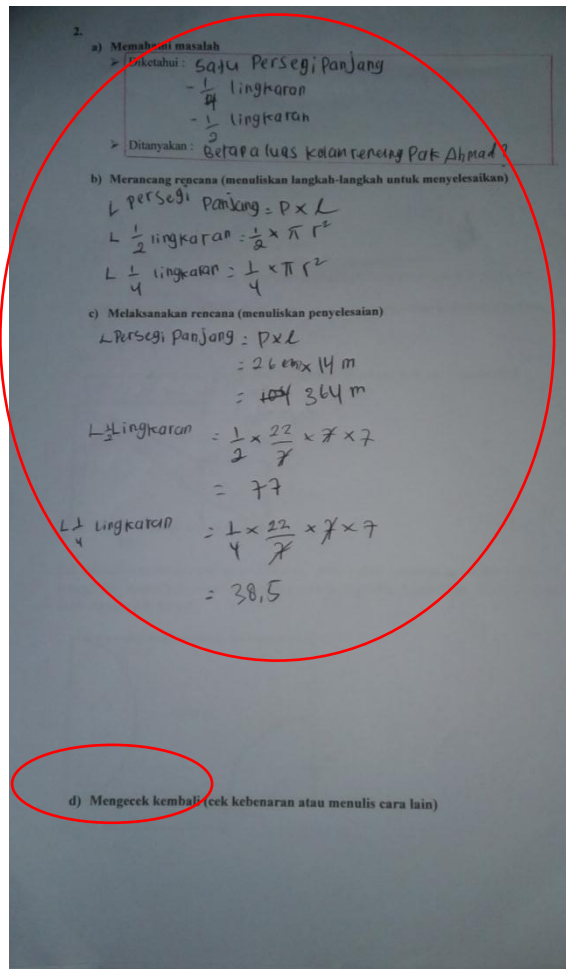 2.
a) Memahami masalah
➢ Diketahui : Satu Persegi Panjang
- 1/4 lingkaran
- 1/2 lingkaran
➢ Ditanyakan : Berapa luas kolam renang Pak Ahmad?
b) Merancang rencana (menuliskan langkah-langkah untuk menyelesaikan)
L persegi Panjang = P x L
L 1/2 lingkaran = 1/2 x π r²
L 1/4 lingkaran = 1/4 x π r²
c) Melaksanakan rencana (menuliskan penyelesaian)
L Persegi Panjang = P x l
= 26 m x 14 m
= 364 m
L 1/2 Lingkaran = 1/2 x 22/7 x 7 x 7
= 77
L 1/4 Lingkaran = 1/4 x 22/7 x 7 x 7
= 38,5
d) Mengecek kembali (cek kebenaran atau menulis cara lain)